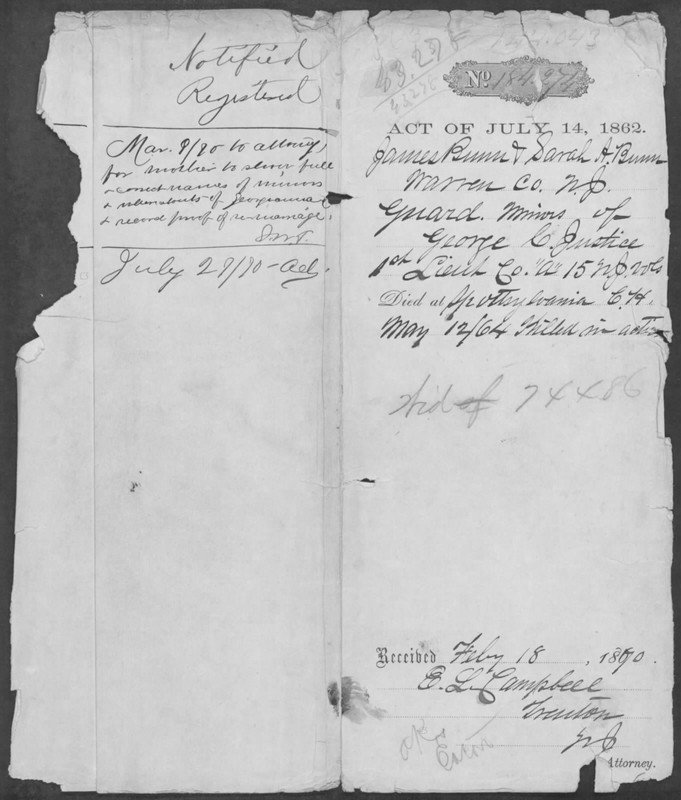 Notified
Registered
Mar. 8/70 to attorney
for mother to show full
& correct names of minors
& whereabouts of Georgianna
& record proof of re-marriage.
July 28/70 - Adj.
63.298
Nº 184,974
ACT OF JULY 14, 1862.
James Bunn & Sarah A. Bunn
Warren Co. N.J.
Guard. Minors of
George C. Justice
1st Lieut Co. "A" 15 N.J. Vols
Died at Spottsylvania C.H.
May 12/64 Killed in action
Wid of 74486
Received Feby 18, 1870.
E. L. Campbell
Trenton
N J
Attorney.